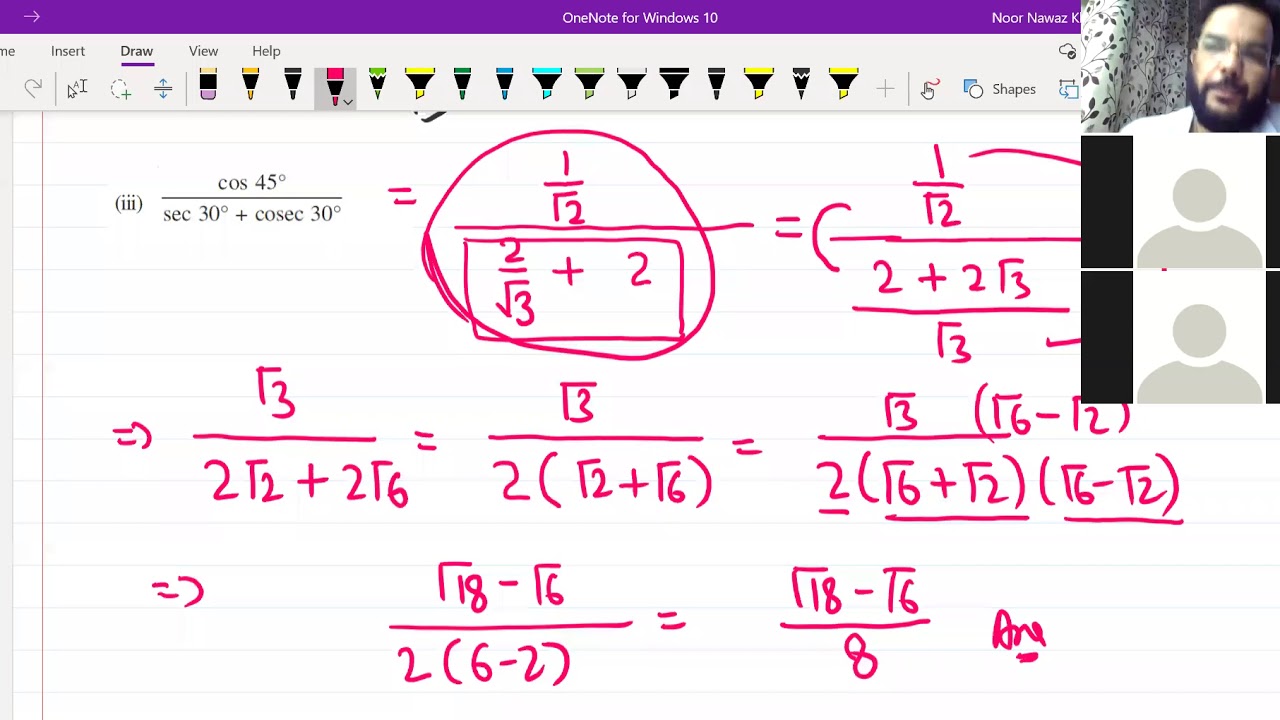 OneNote for Windows 10
Noor Nawaz Kh
me Insert Draw View Help
Shapes
(iii) cos 45° / sec 30° + cosec 30° = 1/√2 / 2/√3 + 2 = ( 1/√2 / 2 + 2√3 / √3
=> √3 / 2√2 + 2√6 = √3 / 2(√2+√6) = √3 (√6-√2) / 2(√6+√2)(√6-√2)
=> √18 - √6 / 2(6-2) = √18 - √6 / 8 Ans